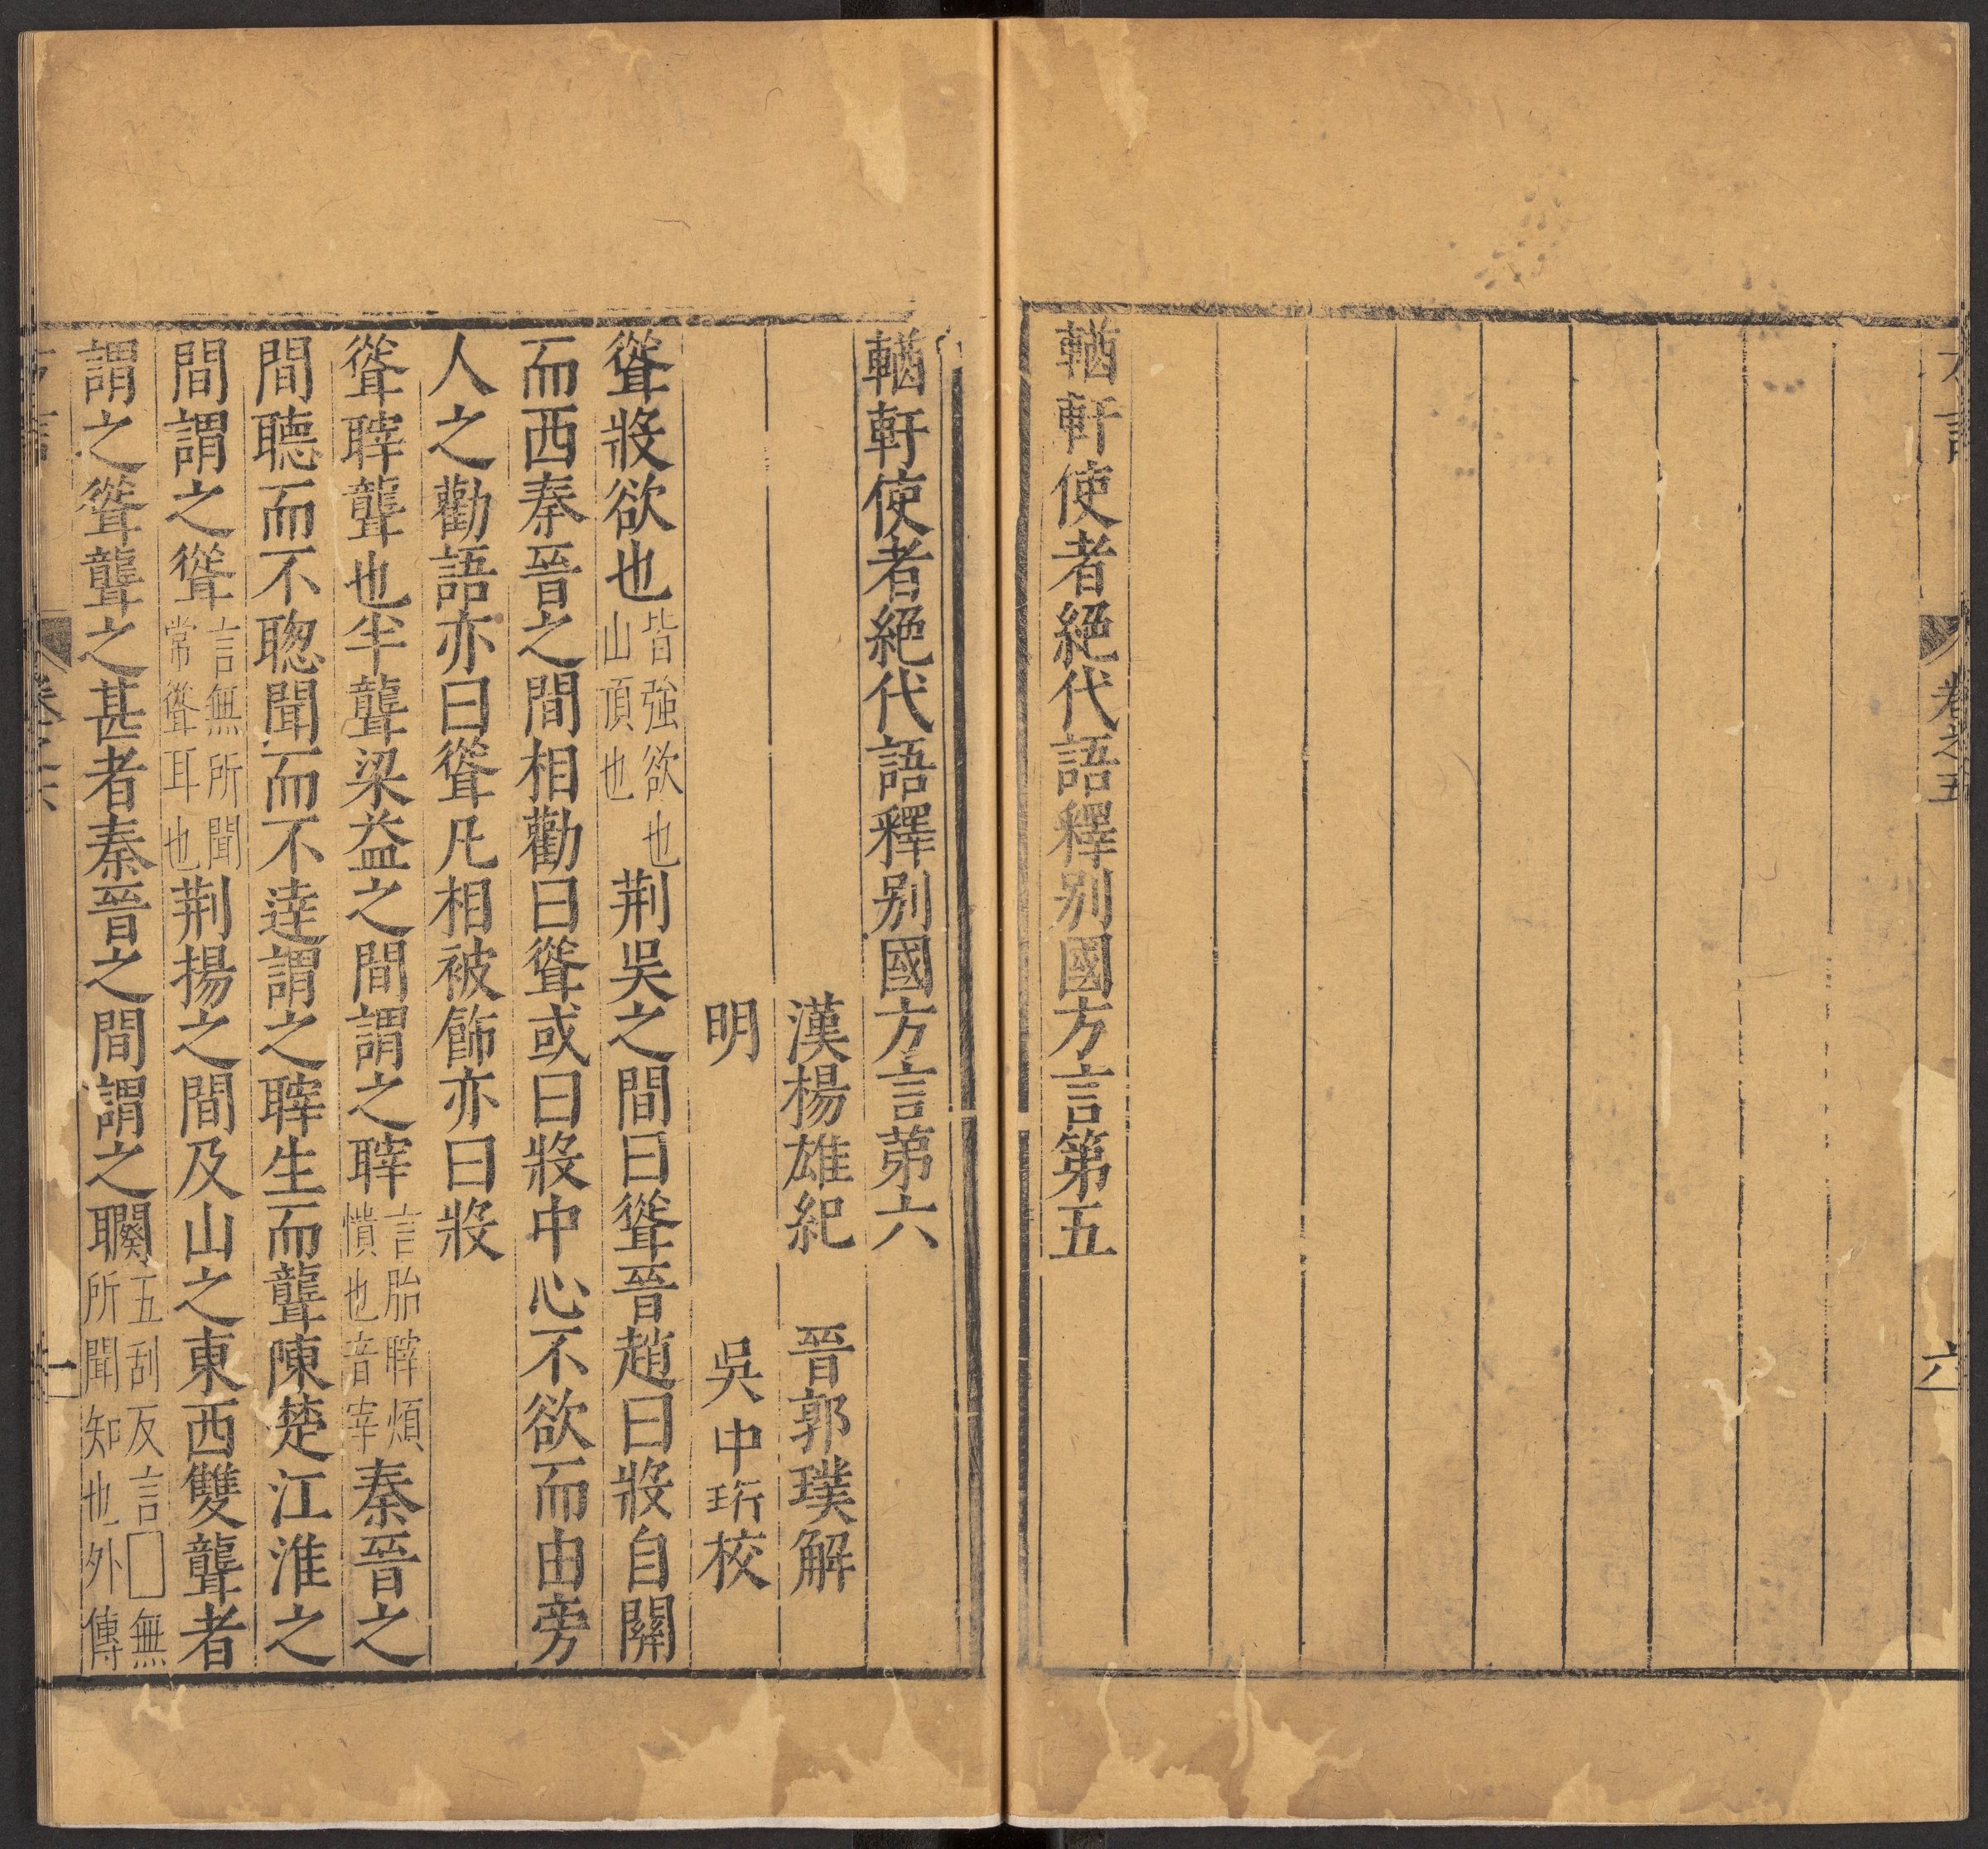 方言 卷之五 六
輶軒使者絕代語釋别國方言第五
輶軒使者絕代語釋别國方言苐六
漢楊雄紀 晉郭璞解
明 吳中珩校
聳將欲也皆強欲也山頂也荆吳之間曰聳晉趙曰將自關
而西秦晉之間相勸曰聳或曰將中心不欲而由旁
人之勸語亦曰聳凡相被飾亦曰將
聳䏁聾也半聾梁益之間謂之䏁言胎䏁煩憒也音宰秦晉之
間聽而不聦聞而不逹謂之䏁生而聾陳楚江淮之
間謂之聳言無所聞常聳耳也荆揚之間及山之東西雙聾者
謂之聳聾之甚者秦晉之間謂之䦧五刮反言□無所聞知也外傳
卷之六 一